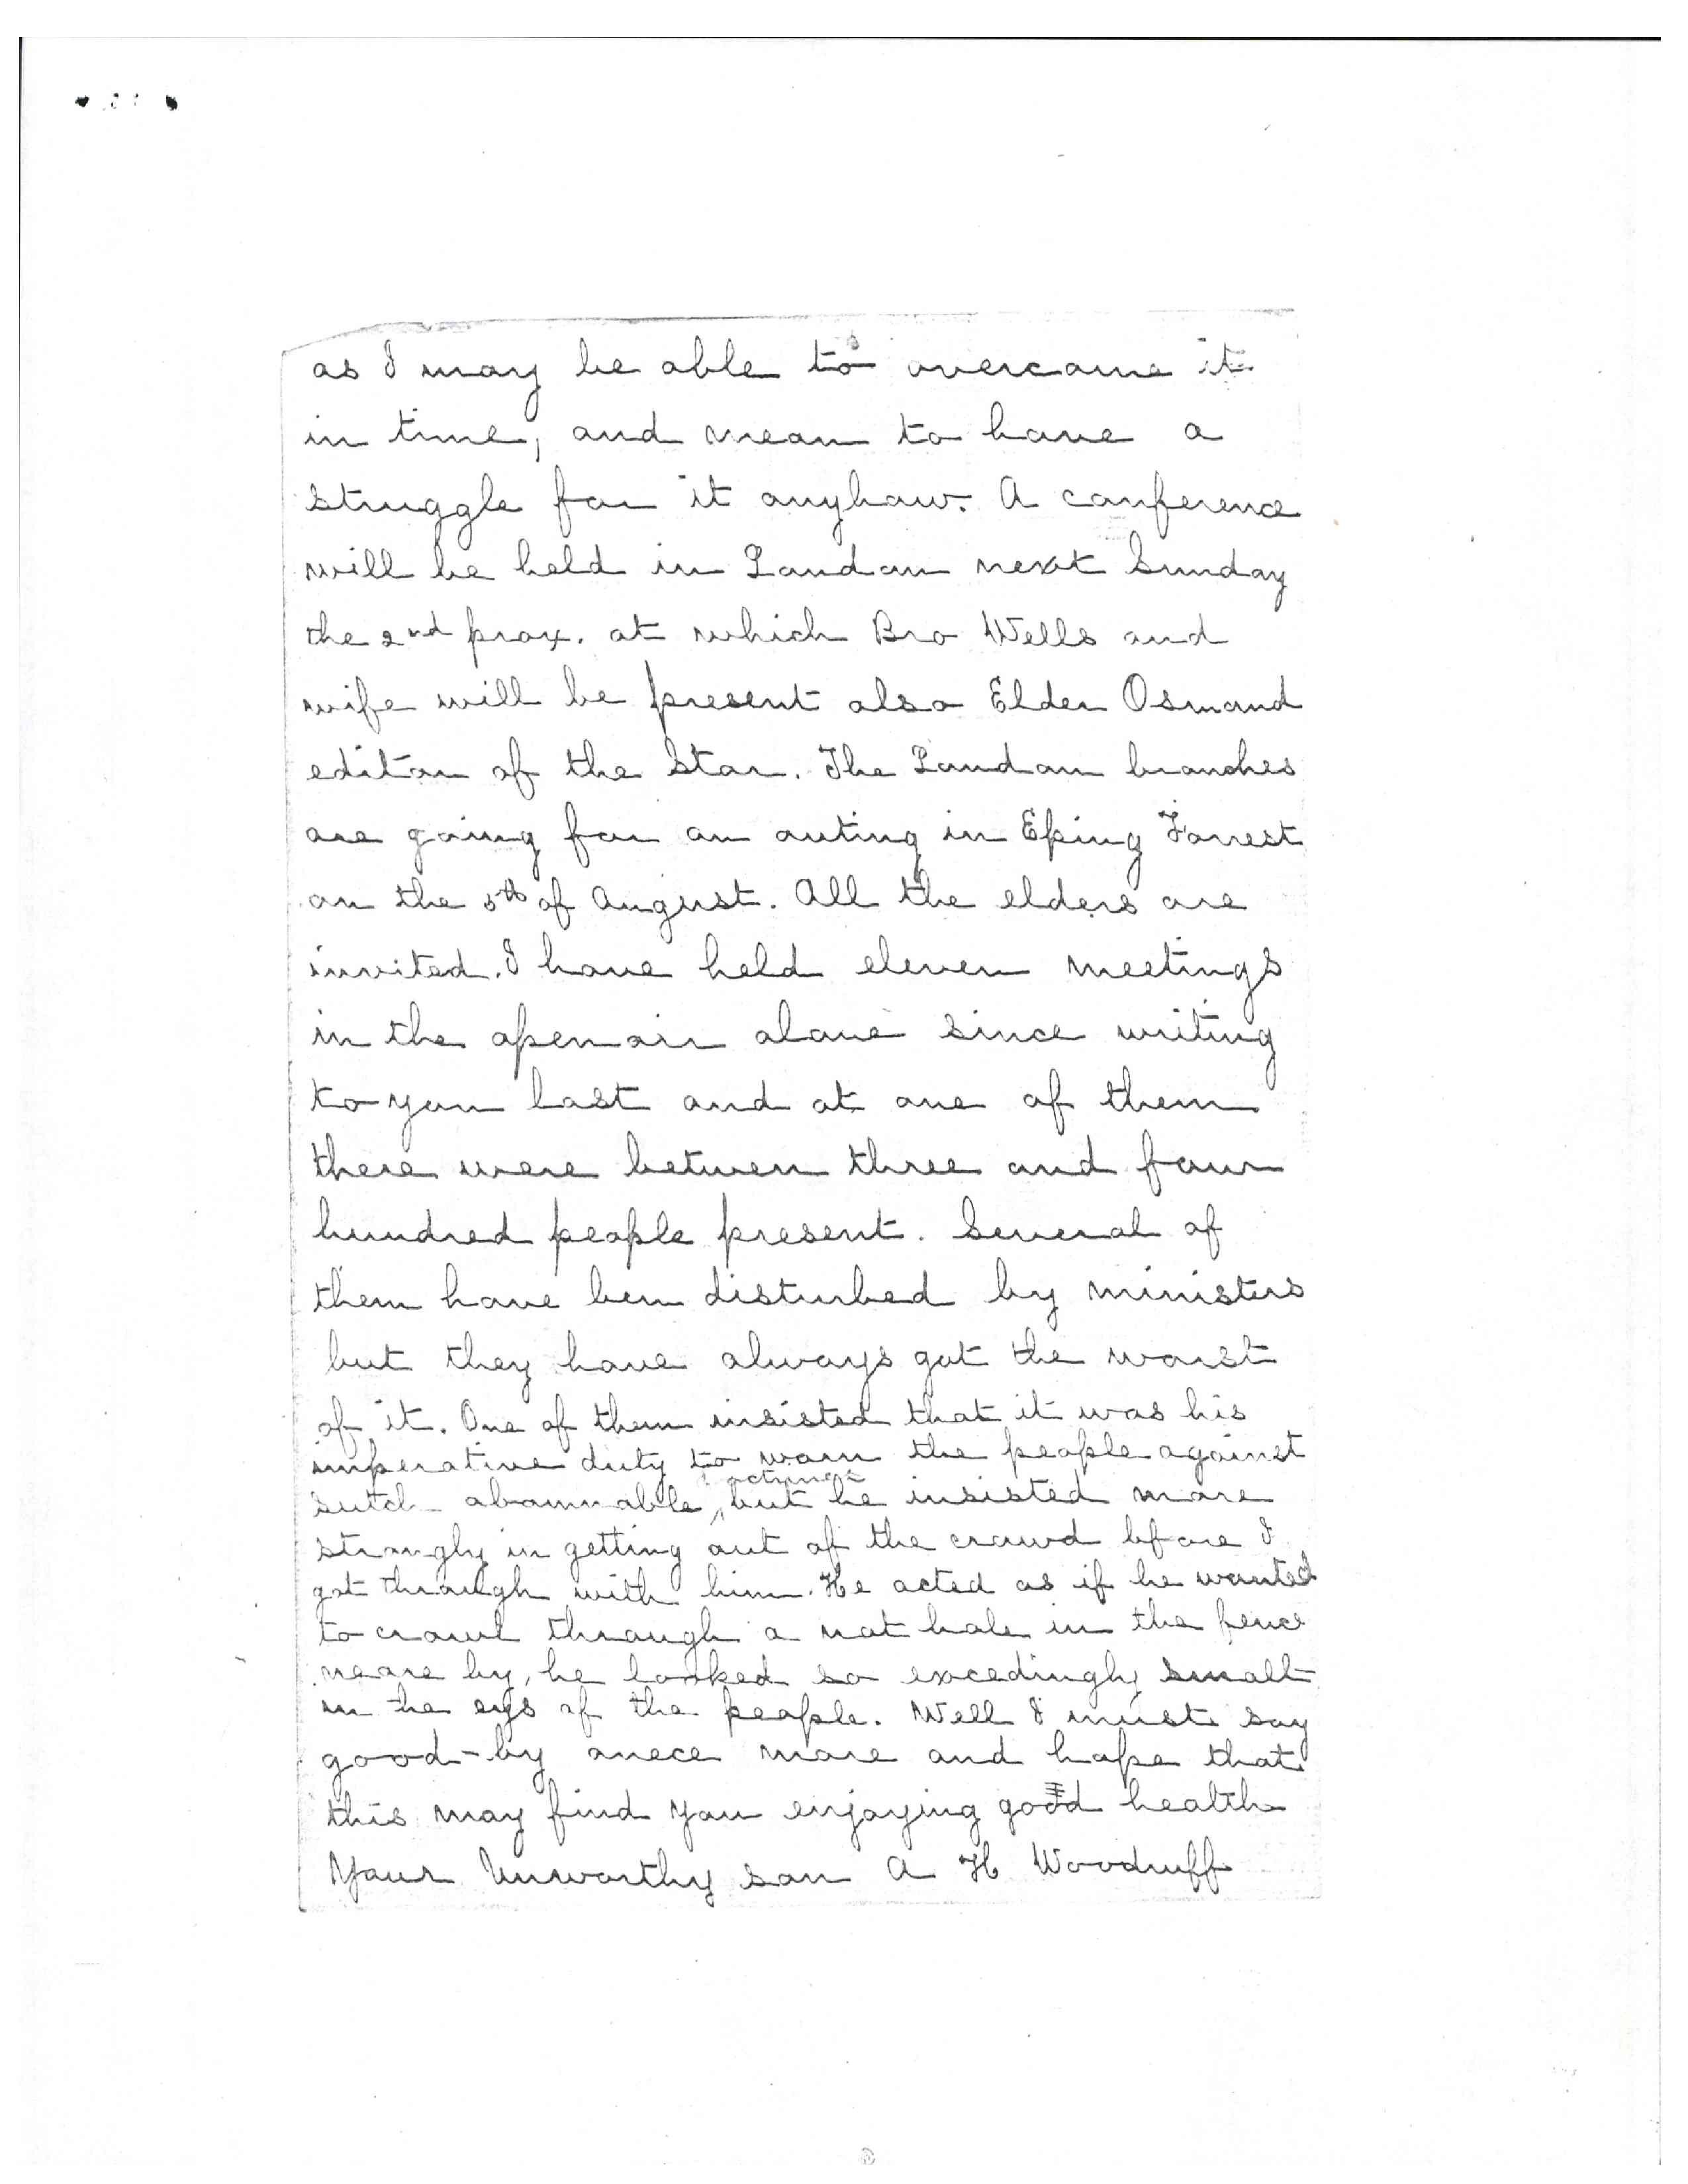 as I may be able to overcome it
in time, and mean to have a
struggle for it anyhow. A conference
will be held in London next Sunday
the 2nd prox. at which Bro Wells and
wife will be present also Elder Osmond
editor of the Star. The London branches
are going for an outing in Eping Forrest
on the 5th of August. All the elders are
invited. I have held eleven meetings
in the open air alone since writing
to you last and at one of them
there were between three and four
hundred people present. Several of
them have ben disturbed by ministers
but they have always got the worst
of it. One of them insisted that it was his
imperative duty to warn the people against
sutch abomnable, but he insisted more
strongly in getting out of the crowd bfore I
got through with him. He acted as if he wanted
to crawl through a rat hole in the fence
neare by, he looked so excedingly small
in the eys of the people. Well I must say
good-by onece more and hope that
this may find you enjoying good health
Your Unworthy son A H Woodruff